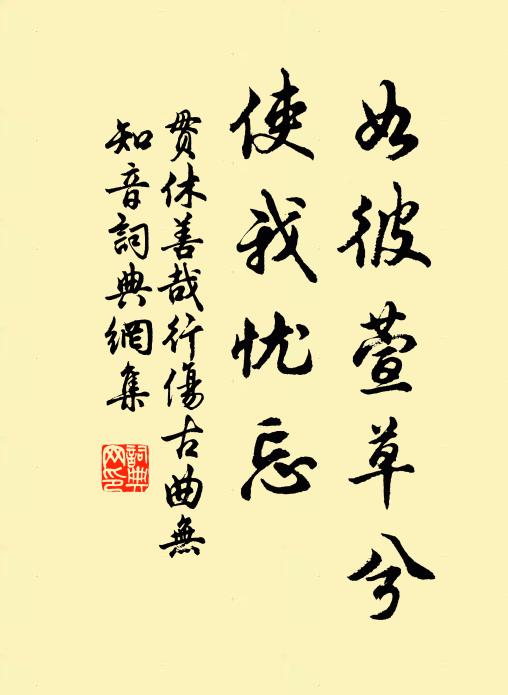 如彼萱草兮
使我忧忘
贯休善哉行伤古曲無
知音詞典網集
詞典网印